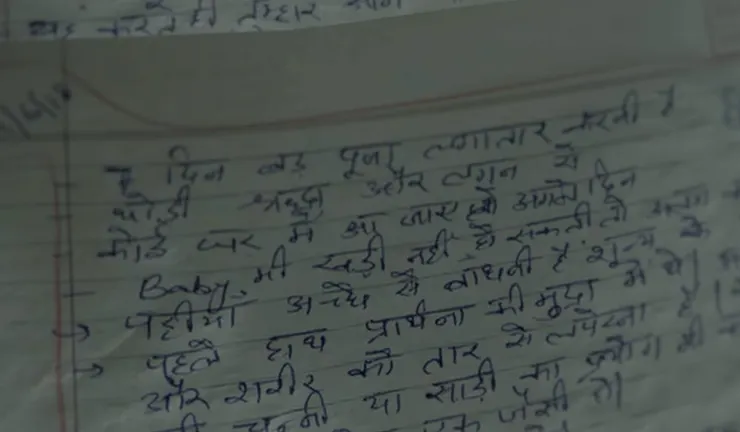 करते
तुम्हारे
7 दिन बड़ पूजा लगातार करनी है
थोड़ी श्रद्धा और लगन से
कोई घर में आ जाए तो अगले दिन
Baby भी खड़ी नहीं हो सकती तो
पट्टीयां अच्छे से बांधनी है शून्य के
→ पहले हाथ प्रार्थना की मुद्रा में थे।
→ और शरीर को तार से लपेटना है
चुन्नी या साड़ी का प्रयोग
एक जैसी हो।